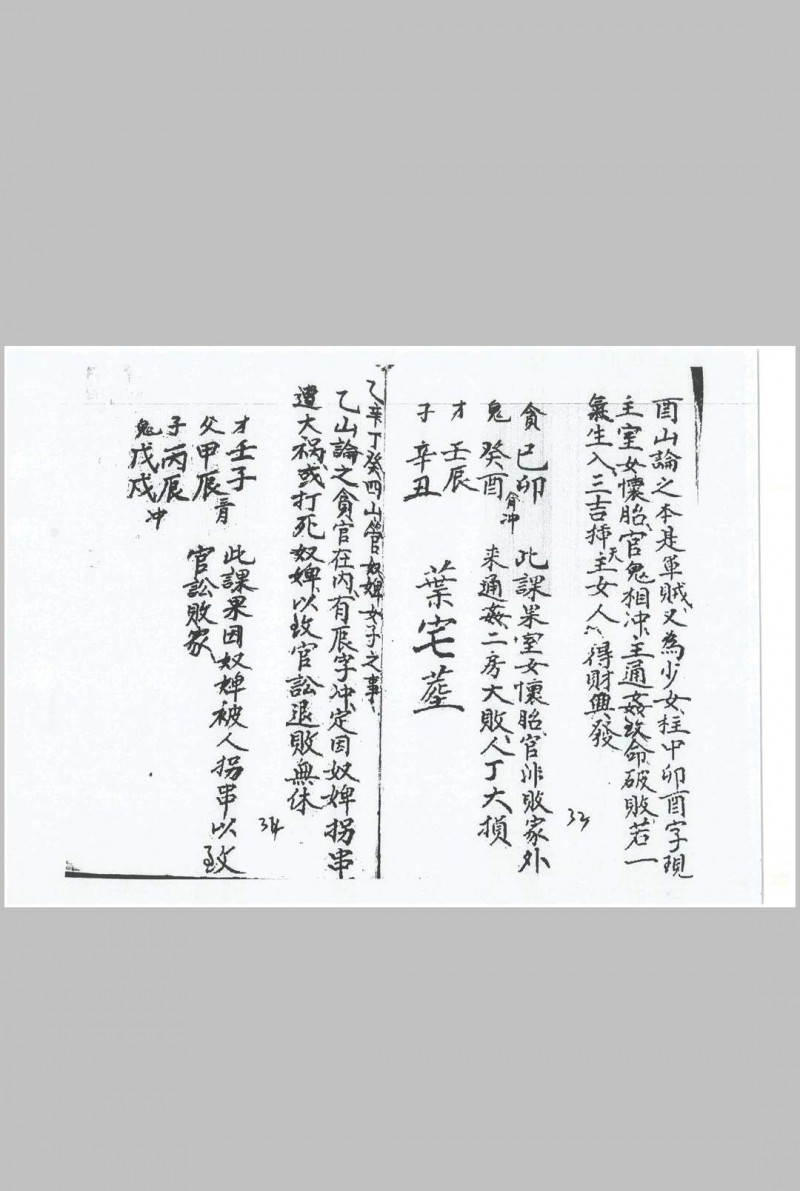 酉山論之本是軍賊又為少女柱中卯酉字現
主室女懷胎官鬼相冲主通姦致命破敗若一
氣生入三吉持主女人得財興發
天
33
貪 巳卯
貪冲
鬼 癸酉
才 壬辰
子 辛丑
此課果室女懷胎官非敗家外
來通姦二房大敗人丁大損
葉宅
乙辛丁癸四山管奴婢女子之事
乙山論之貪官在內有辰字冲定因奴婢拐串
遭大禍或打死奴婢以致官訟退敗無休
34
才 壬子
父 甲辰
子 丙辰
鬼 戊戌 冲
此課果因奴婢被人拐串以致
官訟敗家